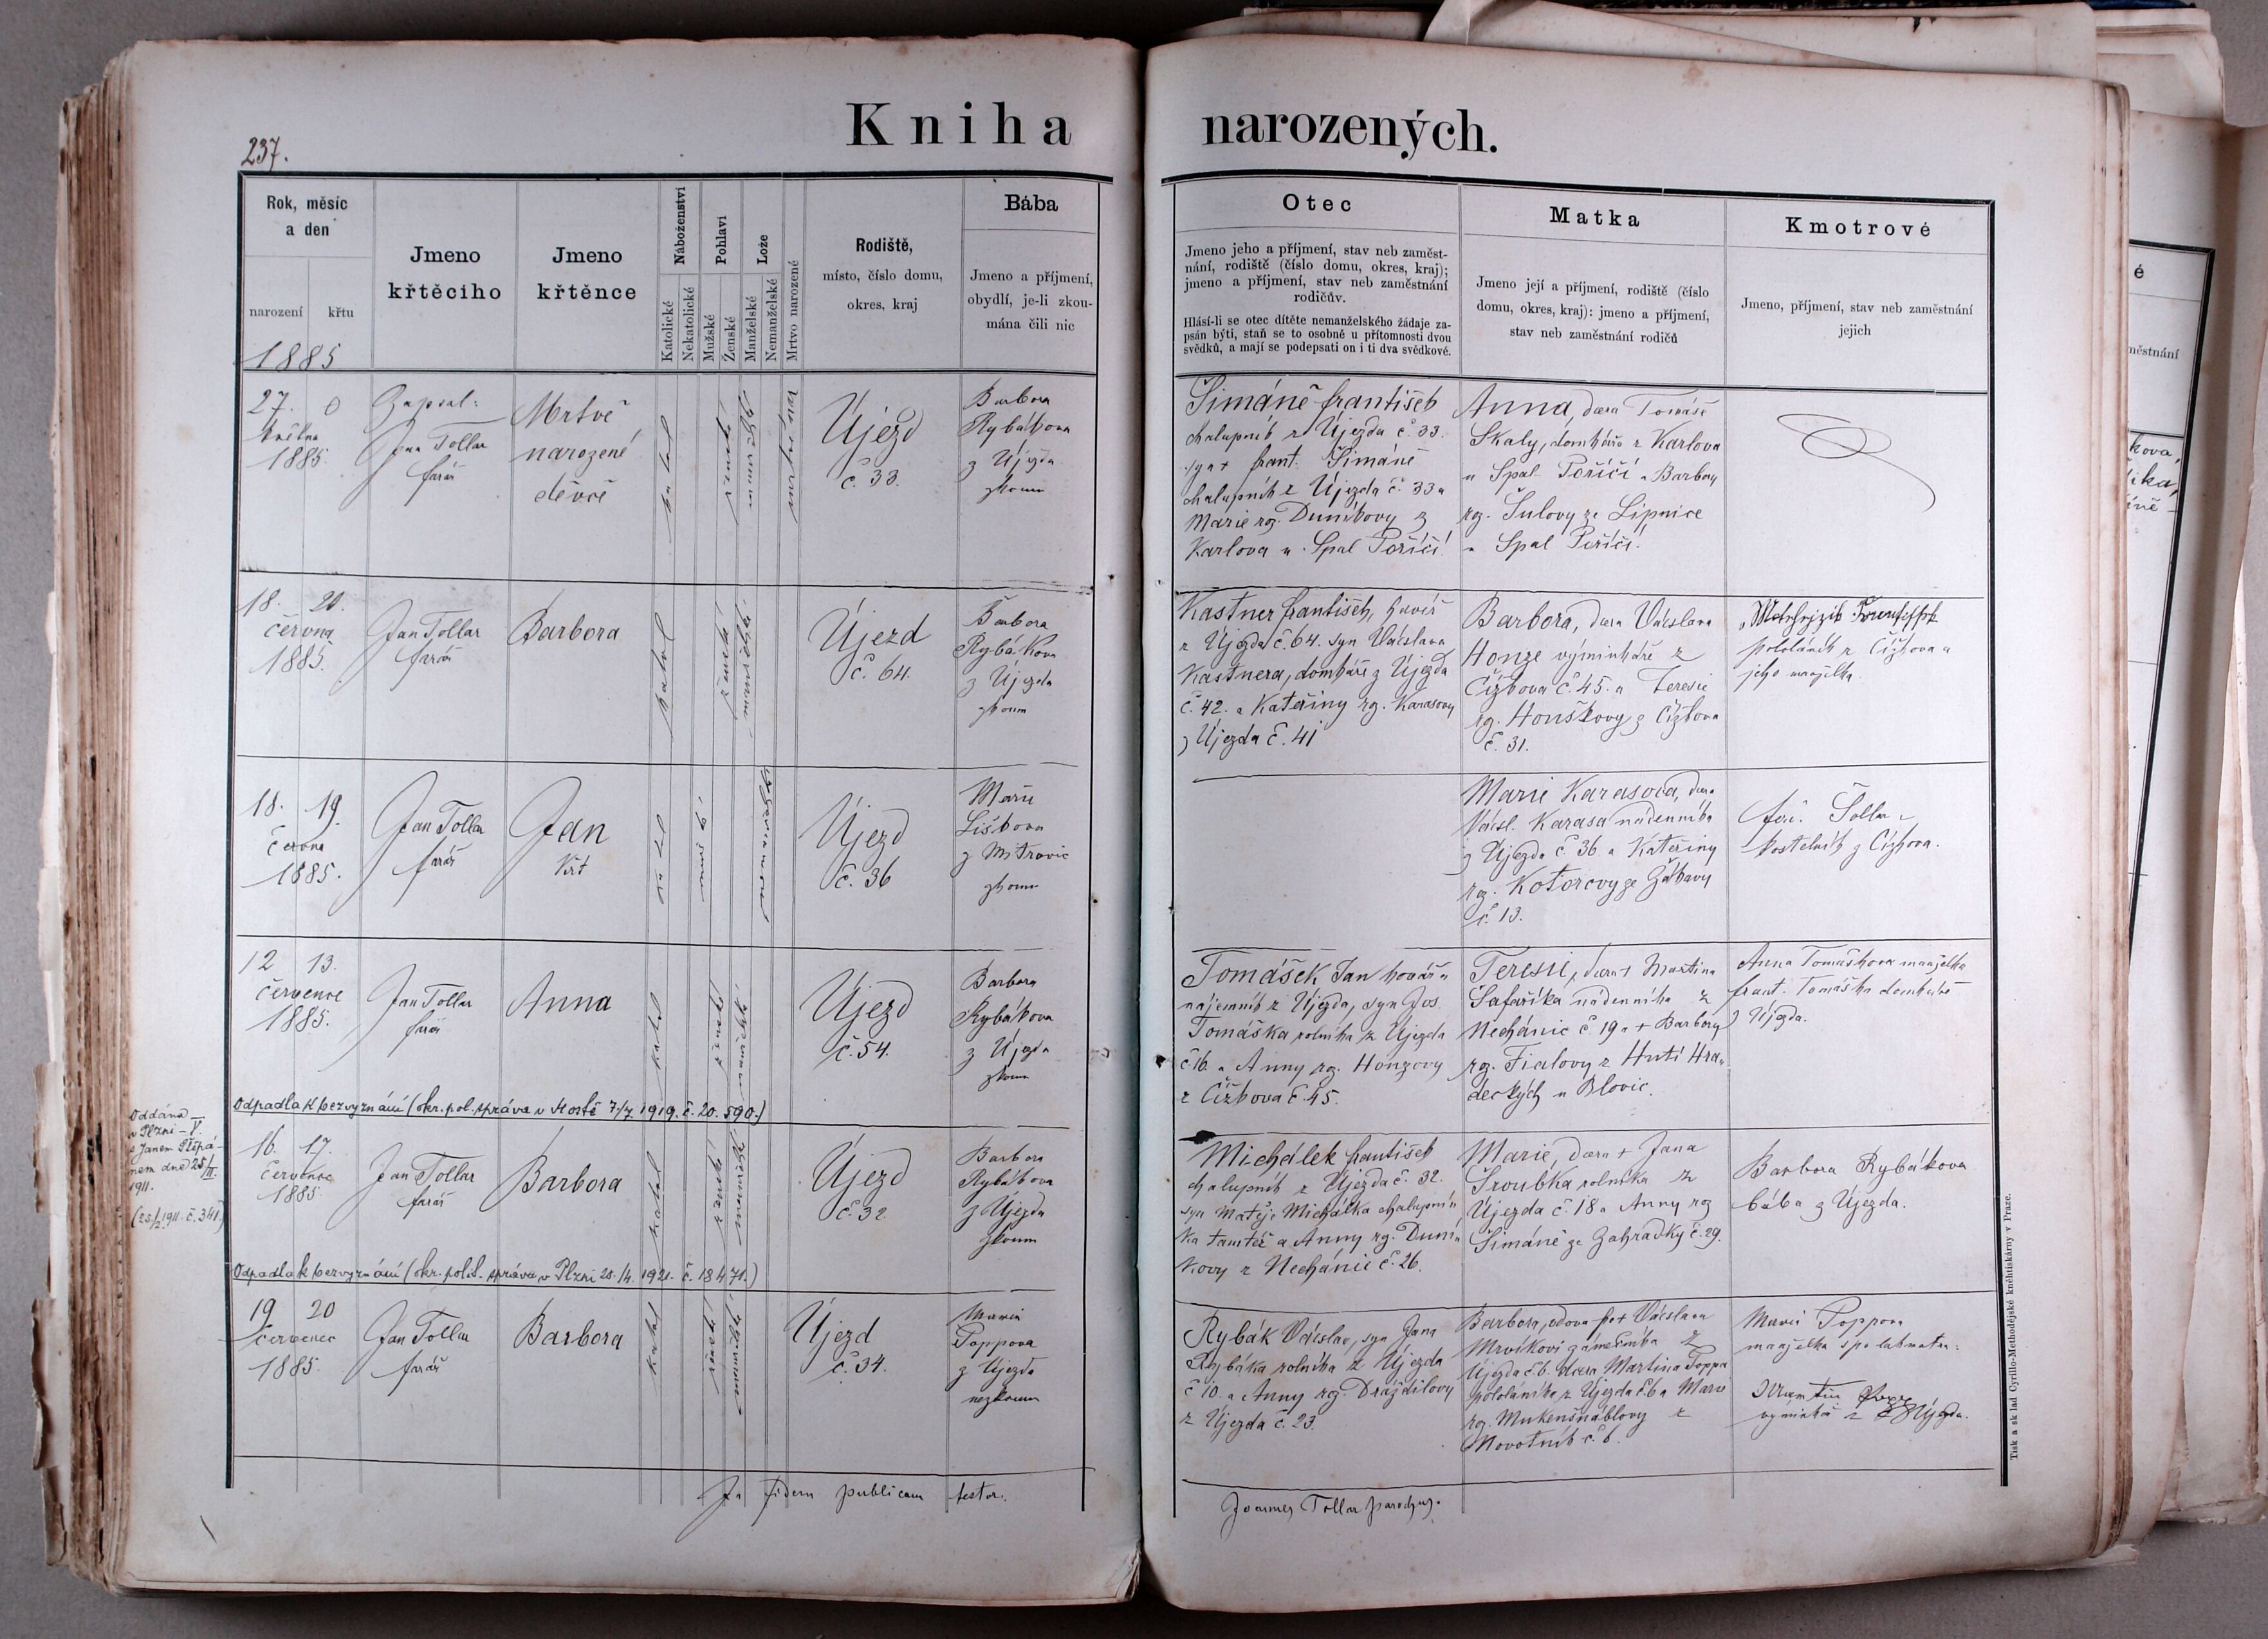 Kniha narozených.
237.
Rok, měsíc
a den
narození
křtu
Jmeno
křtěcího
Jmeno
křtěnce
Náboženství
Katolické
Nekatolické
Pohlaví
Mužské
Ženské
Lože
Manželské
Nemanželské
Mrtvo narozené
Rodiště,
místo, číslo domu,
okres, kraj
Bába
Jmeno a příjmení,
obydlí, je-li zkou-
mána čili nic
Otec
Jmeno jeho a příjmení, stav neb zaměst-
nání, rodiště (číslo domu, okres, kraj);
jmeno a příjmení, stav neb zaměstnání
rodičův.
Hlásí-li se otec dítěte nemanželského žádaje za-
psán býti, staň se to osobně u přítomnosti dvou
svědků, a mají se podepsati on i ti dva svědkové.
Matka
Jmeno její a příjmení, rodiště (číslo
domu, okres, kraj): jmeno a příjmení,
stav neb zaměstnání rodičů
Kmotrové
Jmeno, příjmení, stav neb zaměstnání
jejich
1885
27. 0
května
1885.
Zapsal:
Jan Tollar
farář
Mrtvě
narozené
děvče
katol
ženské
manželské
mrtvěnar
Újezd
č. 33.
Barbora
Rybákova
z Újezda
zkoum
Šimáně František
chalupník z Újezda č. 33.
syn + Frant. Šimáně
chalupník z Újezda č. 33 a
Marie roz. Duníkovy z
Karlova u Spál Poříčí.
Anna, dcera Tomáše
Skaly, domkáře z Karlova
u Spal. Poříčí a Barbory
roz. Šulovy ze Lipnice
u Spal Poříčí.
18. 20.
června
1885.
Jan Tollar
farář
Barbora
katol
ženské
manželské
Újezd
č. 64.
Barbora
Rybákova
z Újezda
zkoum
Kastner František, havíř
z Újezda č. 64. syn Václava
Kastnera, domkáře z Újezda
č. 42. a Kateřiny rz. Karasovy
z Újezda č. 41
Barbora, dcera Václava
Honze výminkáře z
Čížkova č. 45. a Terezie
rz. Houškovy z Čížkova
č. 31.
pololáník z Čížkova a
jeho manželka.
18. 19.
června
1885.
Jan Tollar
farář
Jan
Vít
katol
mužské
nemanželské
Újezd
č. 36
Marie
Liškova
z Mitrovic
zkoum
Marie Karasova, dcera
Václ. Karasa nádenníka
z Újezda č. 36 a Kateřiny
rz. Kotorovy ze Záhavy
č. 13.
kostelník z Čížkova.
12 13.
července
1885.
Jan Tollar
farář
Anna
katol
ženské
manželské
Újezd
č. 54.
Barbora
Rybákova
z Újezda
zkoum
Tomášek Jan kovář a
najemník z Újezda, syn Jos.
Tomáška rolníka z Újezda
č 16. a Anny rz. Honzovy
z Čížkova č. 45.
Teresie, dcera + Martina
Šafaříka nádenníka z
Nechánic č. 19 a + Barbory
rz. Fialovy z Hutí Hra-
deckých u Blovic.
Anna Tomáškova manželka
Frant. Tomáška domkáře
z Újezda.
Odpadla k bezvyznání (okr. pol. správa v Mostě 7/7. 1919. č. 20. 590.)
Oddána
v Plzni – V.
s Janem Štěpá-
nem dne 25/II.
1911.
(25./2. 1911. č. 341.)
16. 17.
července
1885
Jan Tollar
farář
Barbora
katol
ženské
manželské
Újezd
č. 32
Barbora
Rybákova
z Újezda
zkoum
Michálek František
chalupník z Újezda č. 32.
syn Matěje Michálka chalupní-
ka tamtéž a Anny rz. Duní-
kovy z Nechánic č. 26.
Marie, dcera + Jana
Šroubka rolníka z
Újezda č. 18 a Anny rz
Šimáně ze Zahrádky č. 29.
Barbora Rybákova
bába z Újezda.
Odpadla k bezvyznání (okr. polit. správa v Plzni 28./4. 1921. č. 18471.)
19 20
červenec
1885.
Jan Tollar
farář
Barbora
katol
ženské
manželské
Újezd
č. 34.
Marie
Toppova
z Újezda
nezkoum
Rybák Václav, syn Jana
Rybáka rolníka z Újezda
č 10. a Anny rz. Dráždilovy
z Újezda č. 23.
Barbora, vdova po + Václavu
Mrvíkovi zámečníka z
Újezda č. 6. dcera Martina Toppa
pololáníka z Újezda č. 6 a Marie
rz. Mukenšnáblovy z
Novotník č. 6.
Marie Toppova
manželka
výminkář z Újezda.
In fidem publicam testor.
Joannes Tollar parochus.
Tisk a sklad Cyrillo-Methodějské knihtiskárny v Praze.
é
městnání